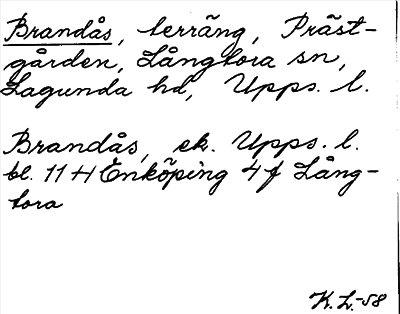 Brandås, terräng, Präst-
gården, Långtora sn,
Lagunda hd, Upps. l.
Brandås, ek. Upps. l.
bl. 11 H Enköping 4 f Lång-
tora
K. L.-58